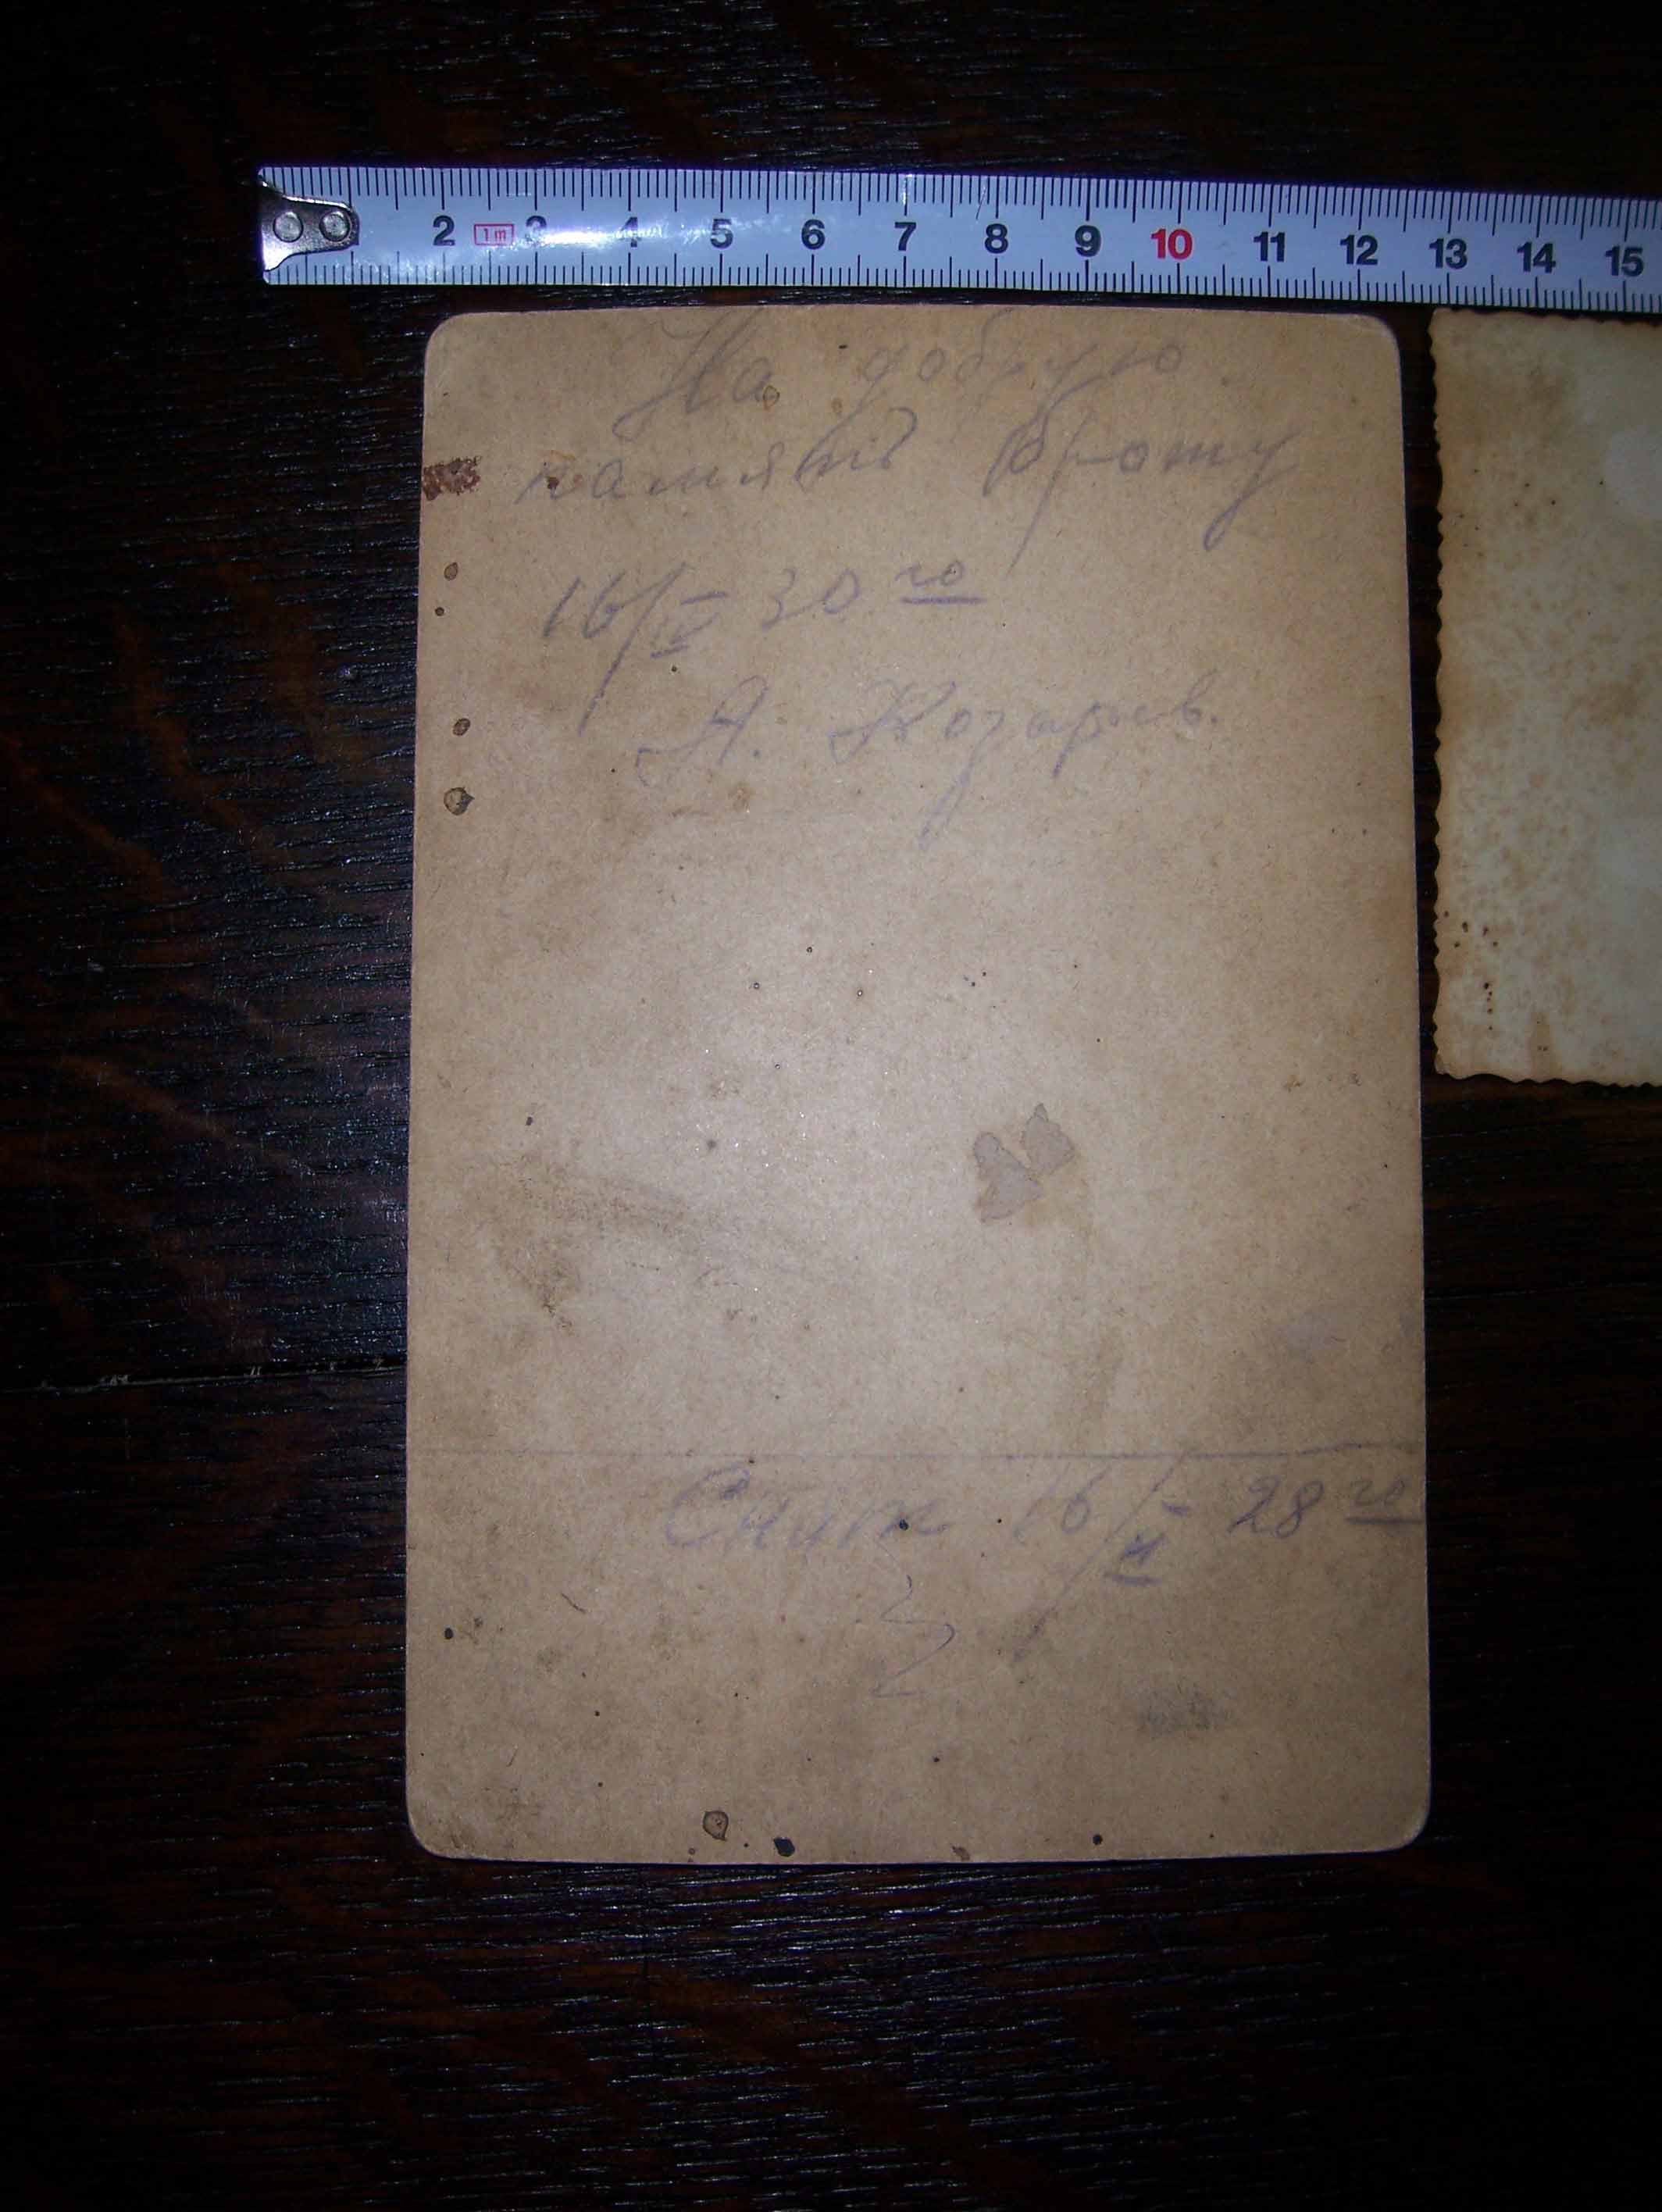 2 1m 3 4 5 6 7 8 9 10 11 12 13 14 15
На добрую
память брату
16/IV 30 го
А. Козырев.
Снит 16/II 28 го